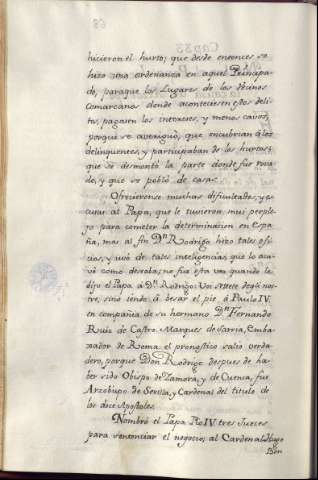 hicieron el hurto; que desde entonces se
hizo una ordenanza en aquel Principa-
do, paraque los Lugares de los mismos
Comarcanos donde aconteciesen estos deli-
tos, pagasen los intereses, y menos cauos,
porque se aueriguó, que encubrian á los
delinquentes, y participaban de los hurtos;
que se desmontó la parte donde fue roua-
do, y que se pobló de casas.
Ofrecieronse muchas dificultades, y es-
curas al Papa, que le tuvieron mui perple-
jo para cometer la determinacion en Espa-
ña, mas al fin Dn. Rodrigo hizo tales ofi-
cios, y usó de tales inteligencias, que lo aca-
vó como deseaba; no fue esta vez quando le
dijo el Papa á Dn. Rodrigo: Voi siette degli nos-
tre; sinó iendo á besar el pie á Paulo IV.
en compañia de su hermano Dn. Fernando
Ruiz de Castro Marques de Sarria, Emba-
xador de Roma: el pronostico salió verda-
dero, porque Don Rodrigo despues de ha-
ber sido Obispo de Zamora, y de Cuenca, fue
Arzobispo de Sevilla, y Cardenal del titulo de
los doce Apostoles.
Nombró el Papa Pio IV. tres Jueces
para sentenciar el negocio; al Cardenal Hugo
Bon